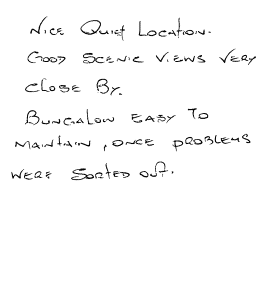 Nice Quiet Location.
Good Scenic Views Very
Close By.
Bungalow Easy To
Maintain, once problems
were Sorted out.